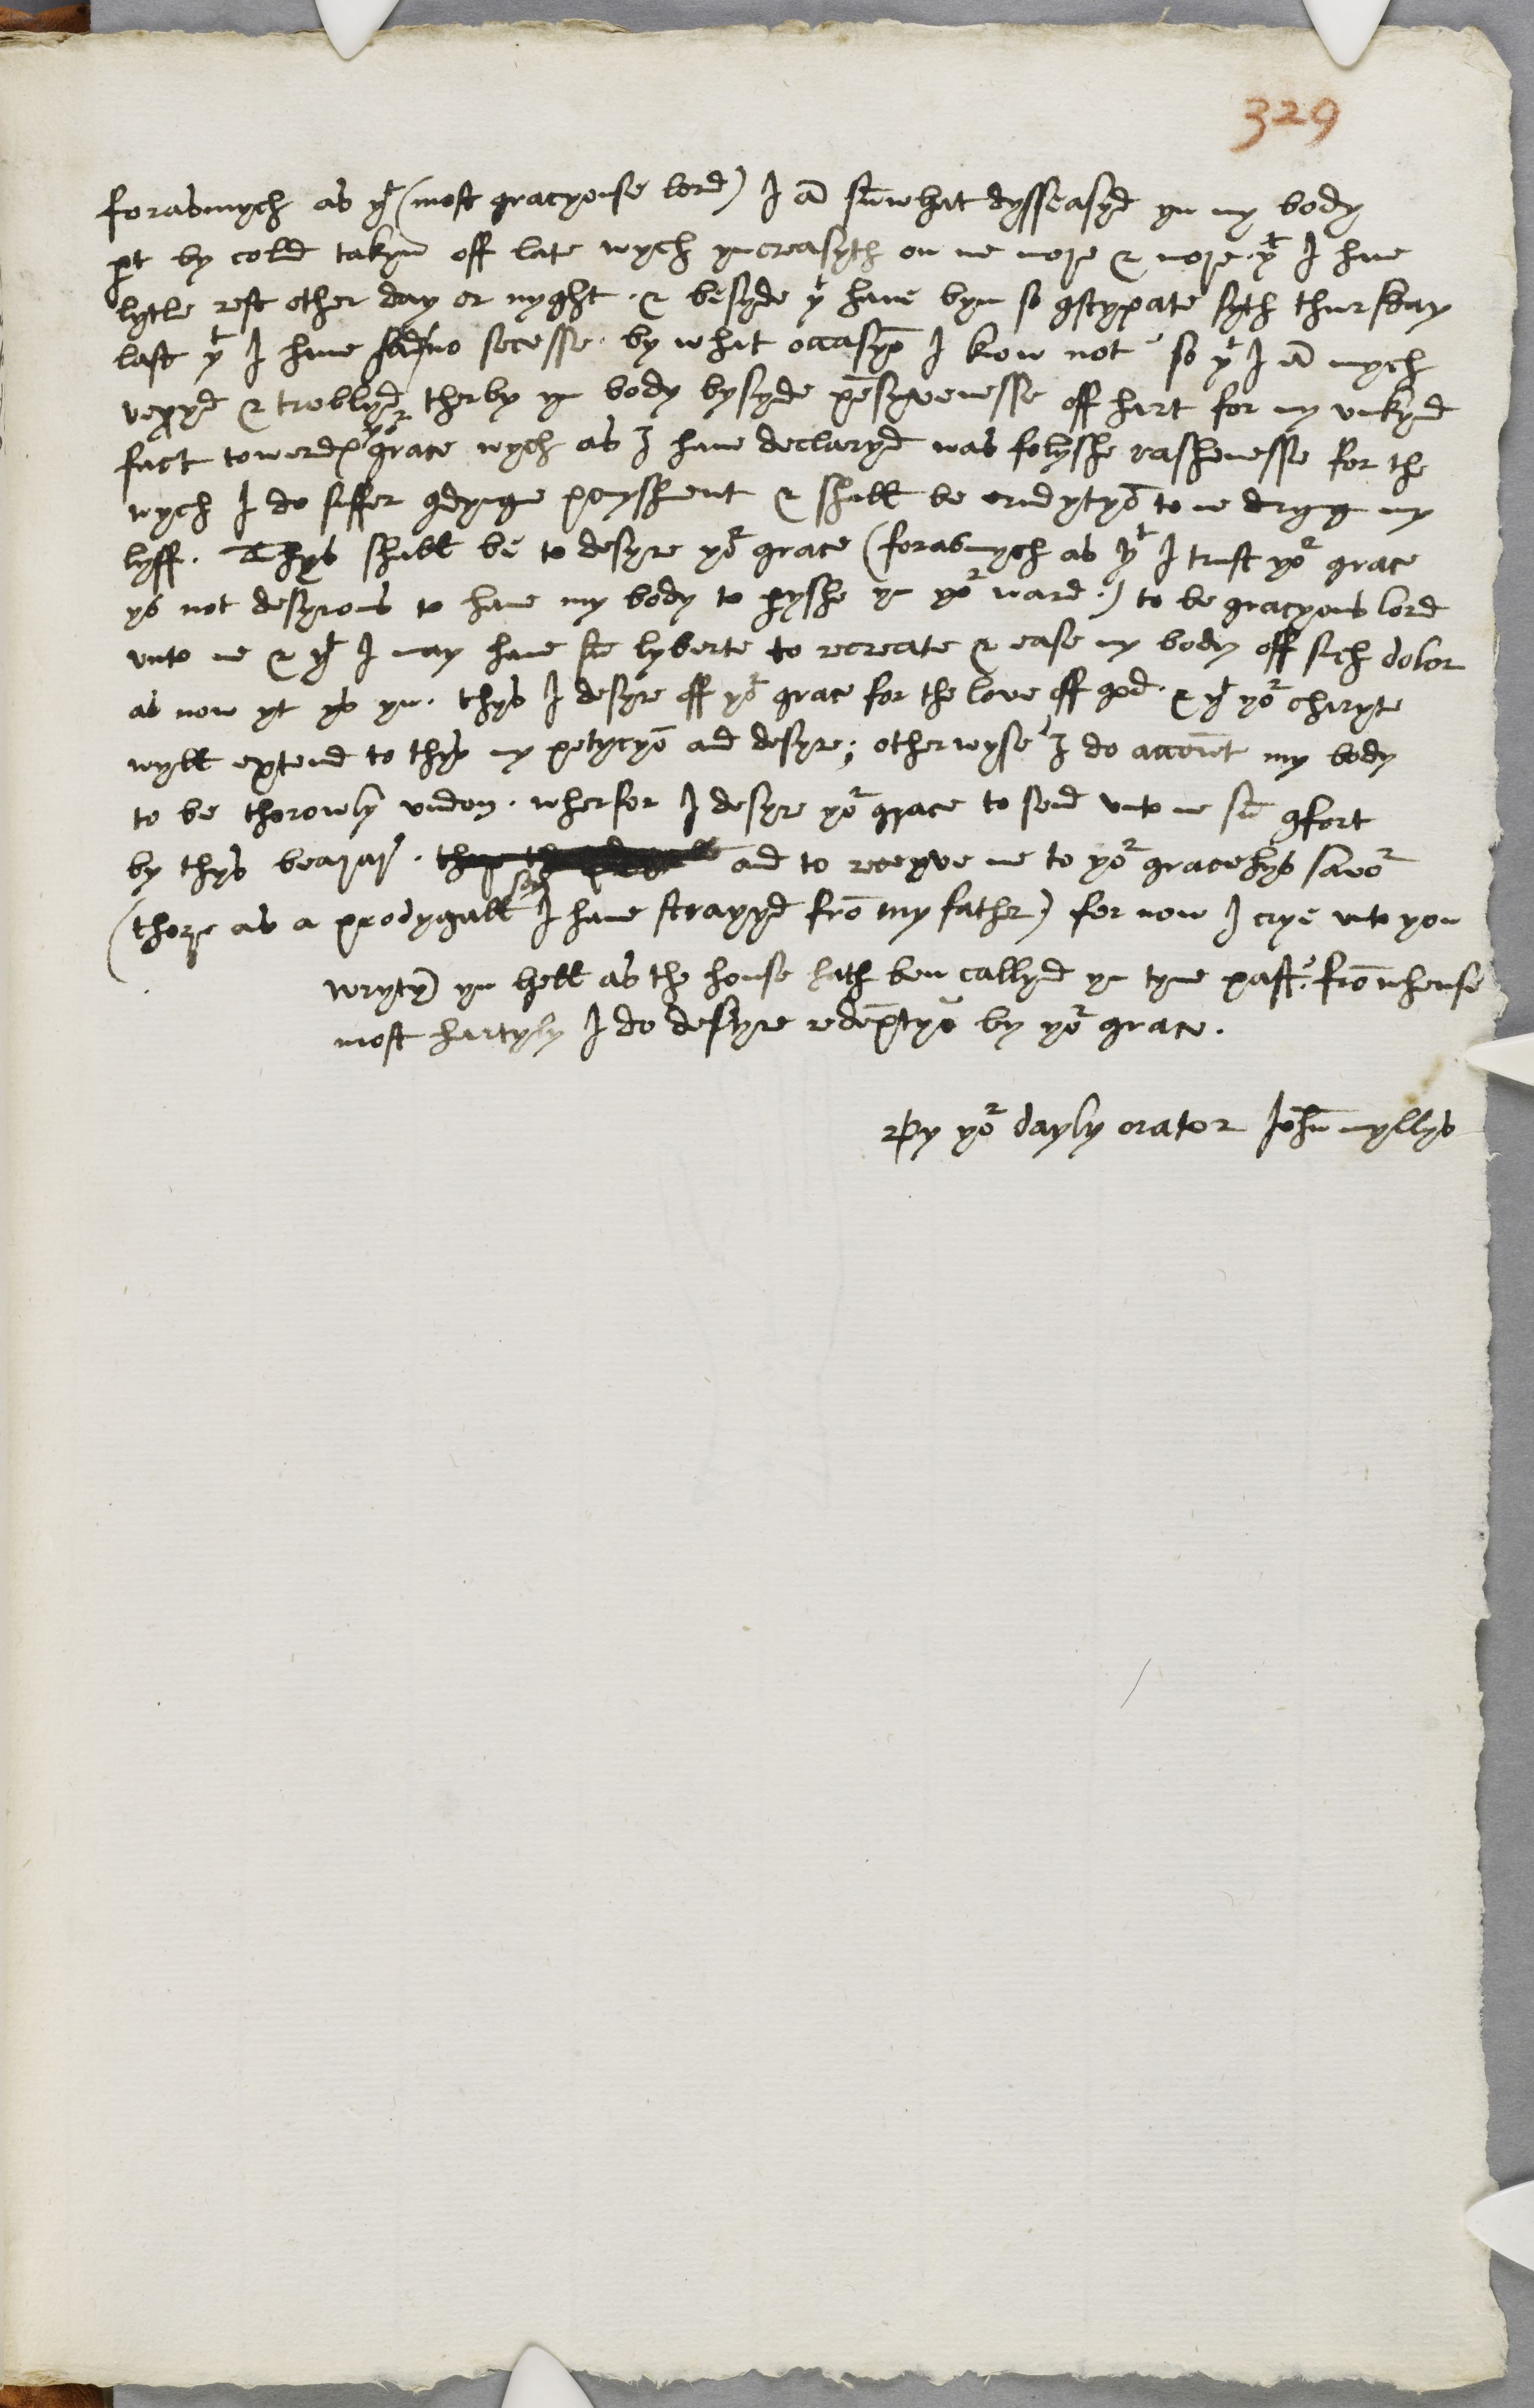 329
forasmych as yt (most gracyouse lord) I ā sūwhat dysseasyd yn my body
pt by cold takyn off late wych yncreasyth on me more & more. yt I have
lytle rest other day or nyght. & besyde yt have byn so cstypate syth thursday
last yt I have had no secesse. by what occasyō I know not so yt I ā mych
vexyd & troblyd therby yn body bysyde pēsyvenesse off hart for my vnkyd
fact towerd yor grace wych as I have declaryd was folyshe rashenesse for the
wych I do suffer cdygne ponyshment & shall be erudytyō to me durīg my
lyff. Thys shall be to desyre yor grace (forasmych as yt I trust yor grace
ys not desyrous to have my body to pyshe yn yor ward.) to be gracyous lord
vnto me & yt I may have sūe lyberte to recreate & ease my body off such dolor
as now yt ys yn. thys I desyre off yor grace for the love off god. & yt yor charyte
wyll extend to thys my petycyō and desyre; otherwyse I do accoūt my body
to be thorowly vndon. wherfor I desyre yor grace to send vnto me sū cfort
by thys bearar. and to receyve me to yor gracehys favor
(thoze as a prodygall son I have strayyd frō my father) for now I crye vnto you
wrytyn yn hell as the house hath ben callyd yn tyme past. frō whense
most hartyly I do desyre redēptyō by yor grace.
By yor dayly orator Johñ myllys